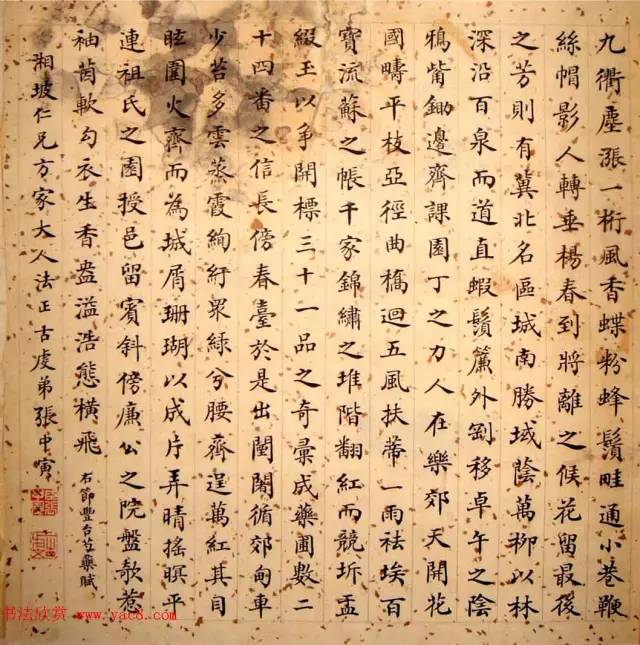 九衢塵漲一桁風香蝶粉蜂鬚畦通小巷鞭
絲帽影人轉垂楊春到將離之候花留最後
之芳則有冀北名區城南勝域蔭萬柳以林
深沿百泉而道直蝦鬚簾外劉移卓午之陰
鴉觜鋤邊齊課園丁之力人在樂郊天開花
國疇平枝亞徑曲橋迴五風扶蒂一雨祛埃百
寶流蘇之帳千家錦繡之堆階翻紅而競坼盂
綴玉以爭開標三十一品之奇彙成藥圃數二
十四番之信長傍春臺於是出闉闍循郊甸車
少苔多雲蒸霞絢紆眾綠兮腰齊逞萬紅其目
眩圍火齊而為城屑珊瑚以成片弄晴搖暝平
連祖氏之園授邑留賓斜傍廉公之院盤欹惹
袖茵軟勾衣生香盎溢浩態橫飛
右節豐台芍藥賦
湘坡仁兄方家大人法正古虞弟張中寅
书法欣赏 www.yac8.com